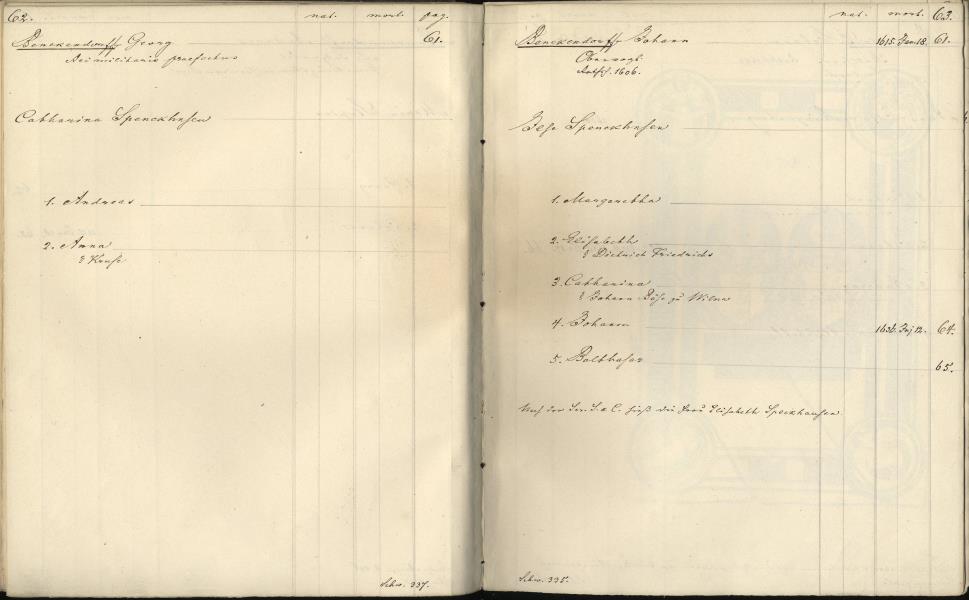 62. nat. mort. pag.
Benckendorff Georg 61.
Rei militaris praefectus
Catharina Spenckhusen
1. Andreas
2. Anna
Kruse
Schw. 337.
nat. mort. 63.
Benckendorff Johann 1615. Jan. 18. 61.
Obervogt
Ilse Spenckhusen
1. Margaretha
2. Elisabeth
Dietrich Friedrichs
3. Catharina
Johann Böse zu Wilna
4. Johann 64.
5. Balthasar 65.
Nach der hieß die Frau Elisabeth Speckhausen
Schw. 335.